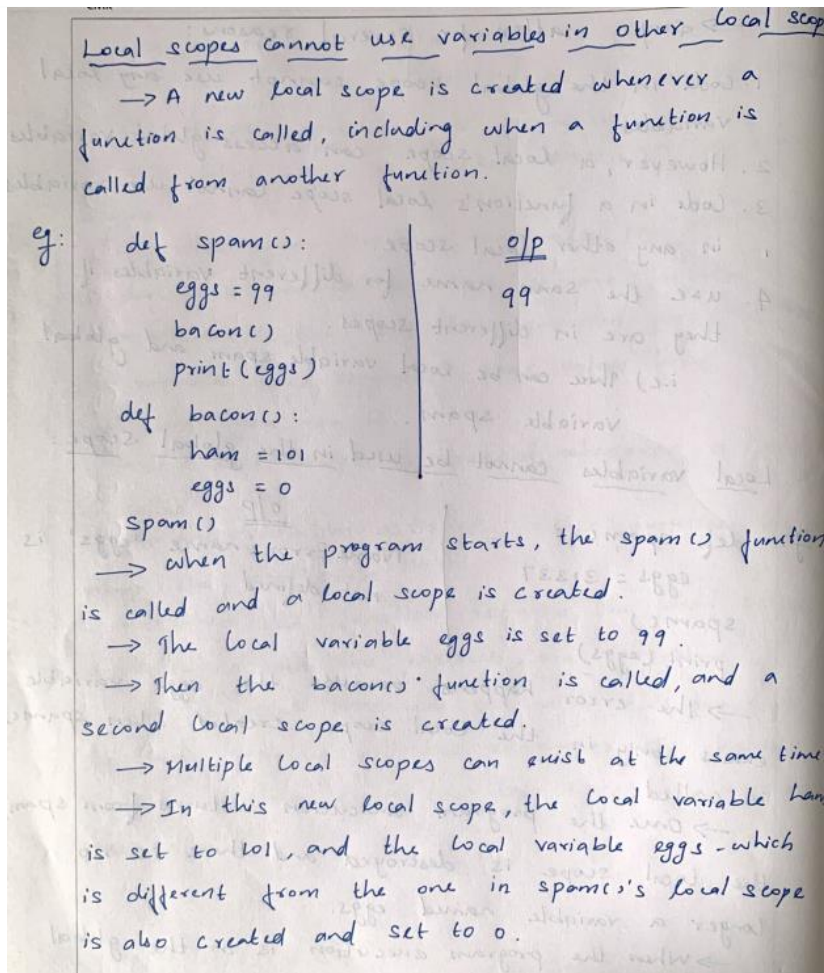 Local scopes cannot use variables in other local scop
→ A new local scope is created whenever a
function is called, including when a function is
called from another function.
eg: def spam(): o/p
eggs = 99 99
bacon()
print(eggs)
def bacon():
ham = 101
eggs = 0
spam()
→ when the program starts, the spam() function
is called and a local scope is created.
→ The local variable eggs is set to 99.
→ Then the bacon() function is called, and a
second local scope is created.
→ Multiple local scopes can exist at the same time
→ In this new local scope, the local variable ham
is set to 101, and the local variable eggs - which
is different from the one in spam()'s local scope
is also created and set to 0.